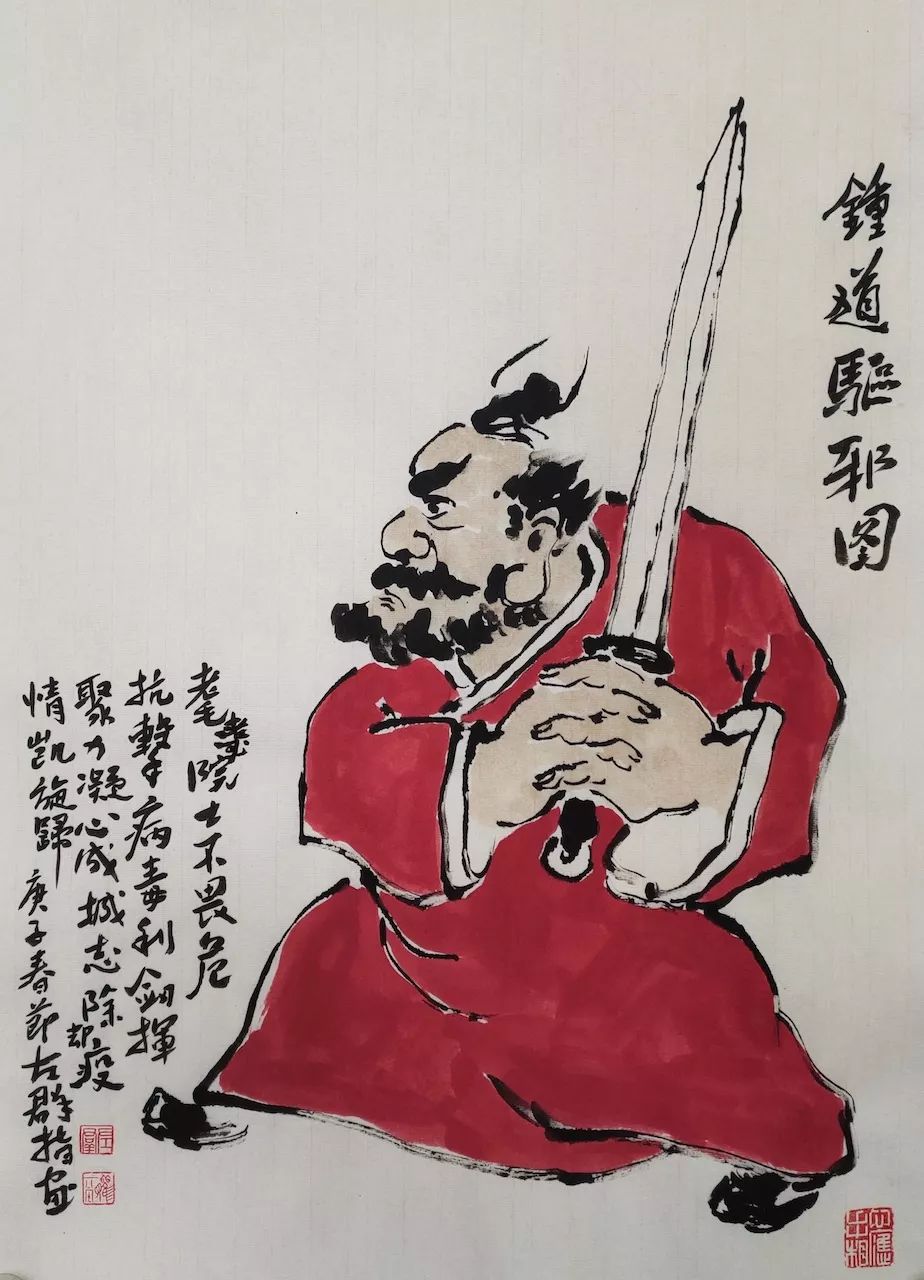 鍾道驅邪图
耄耋院士不畏危
抗擊病毒利劍揮
聚力凝心成城志除却疫
情凯旋歸 庚子春節左群指画